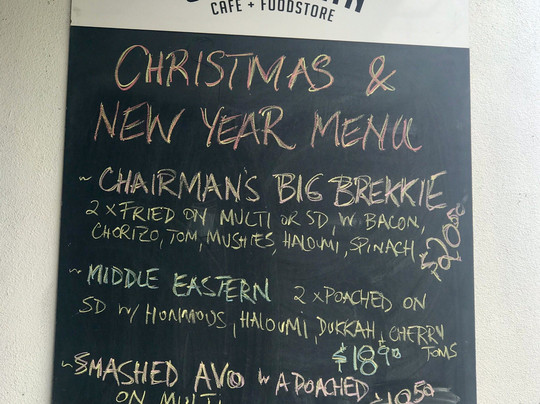 CAFE + FOODSTORE
CHRISTMAS &
NEW YEAR MENU
~ CHAIRMAN'S BIG BREKKIE
2 x FRIED ON MULTI OR SD, W BACON,
CHORIZO, TOM, MUSHIES, HALOUMI, SPINACH
$20.50
~ MIDDLE EASTERN 2 x POACHED ON
SD W/ HOMMOUS, HALOUMI, DUKKAH, CHERRY
TOMS
$18.90
~ SMASHED AVO W A POACHED
ON MULTI